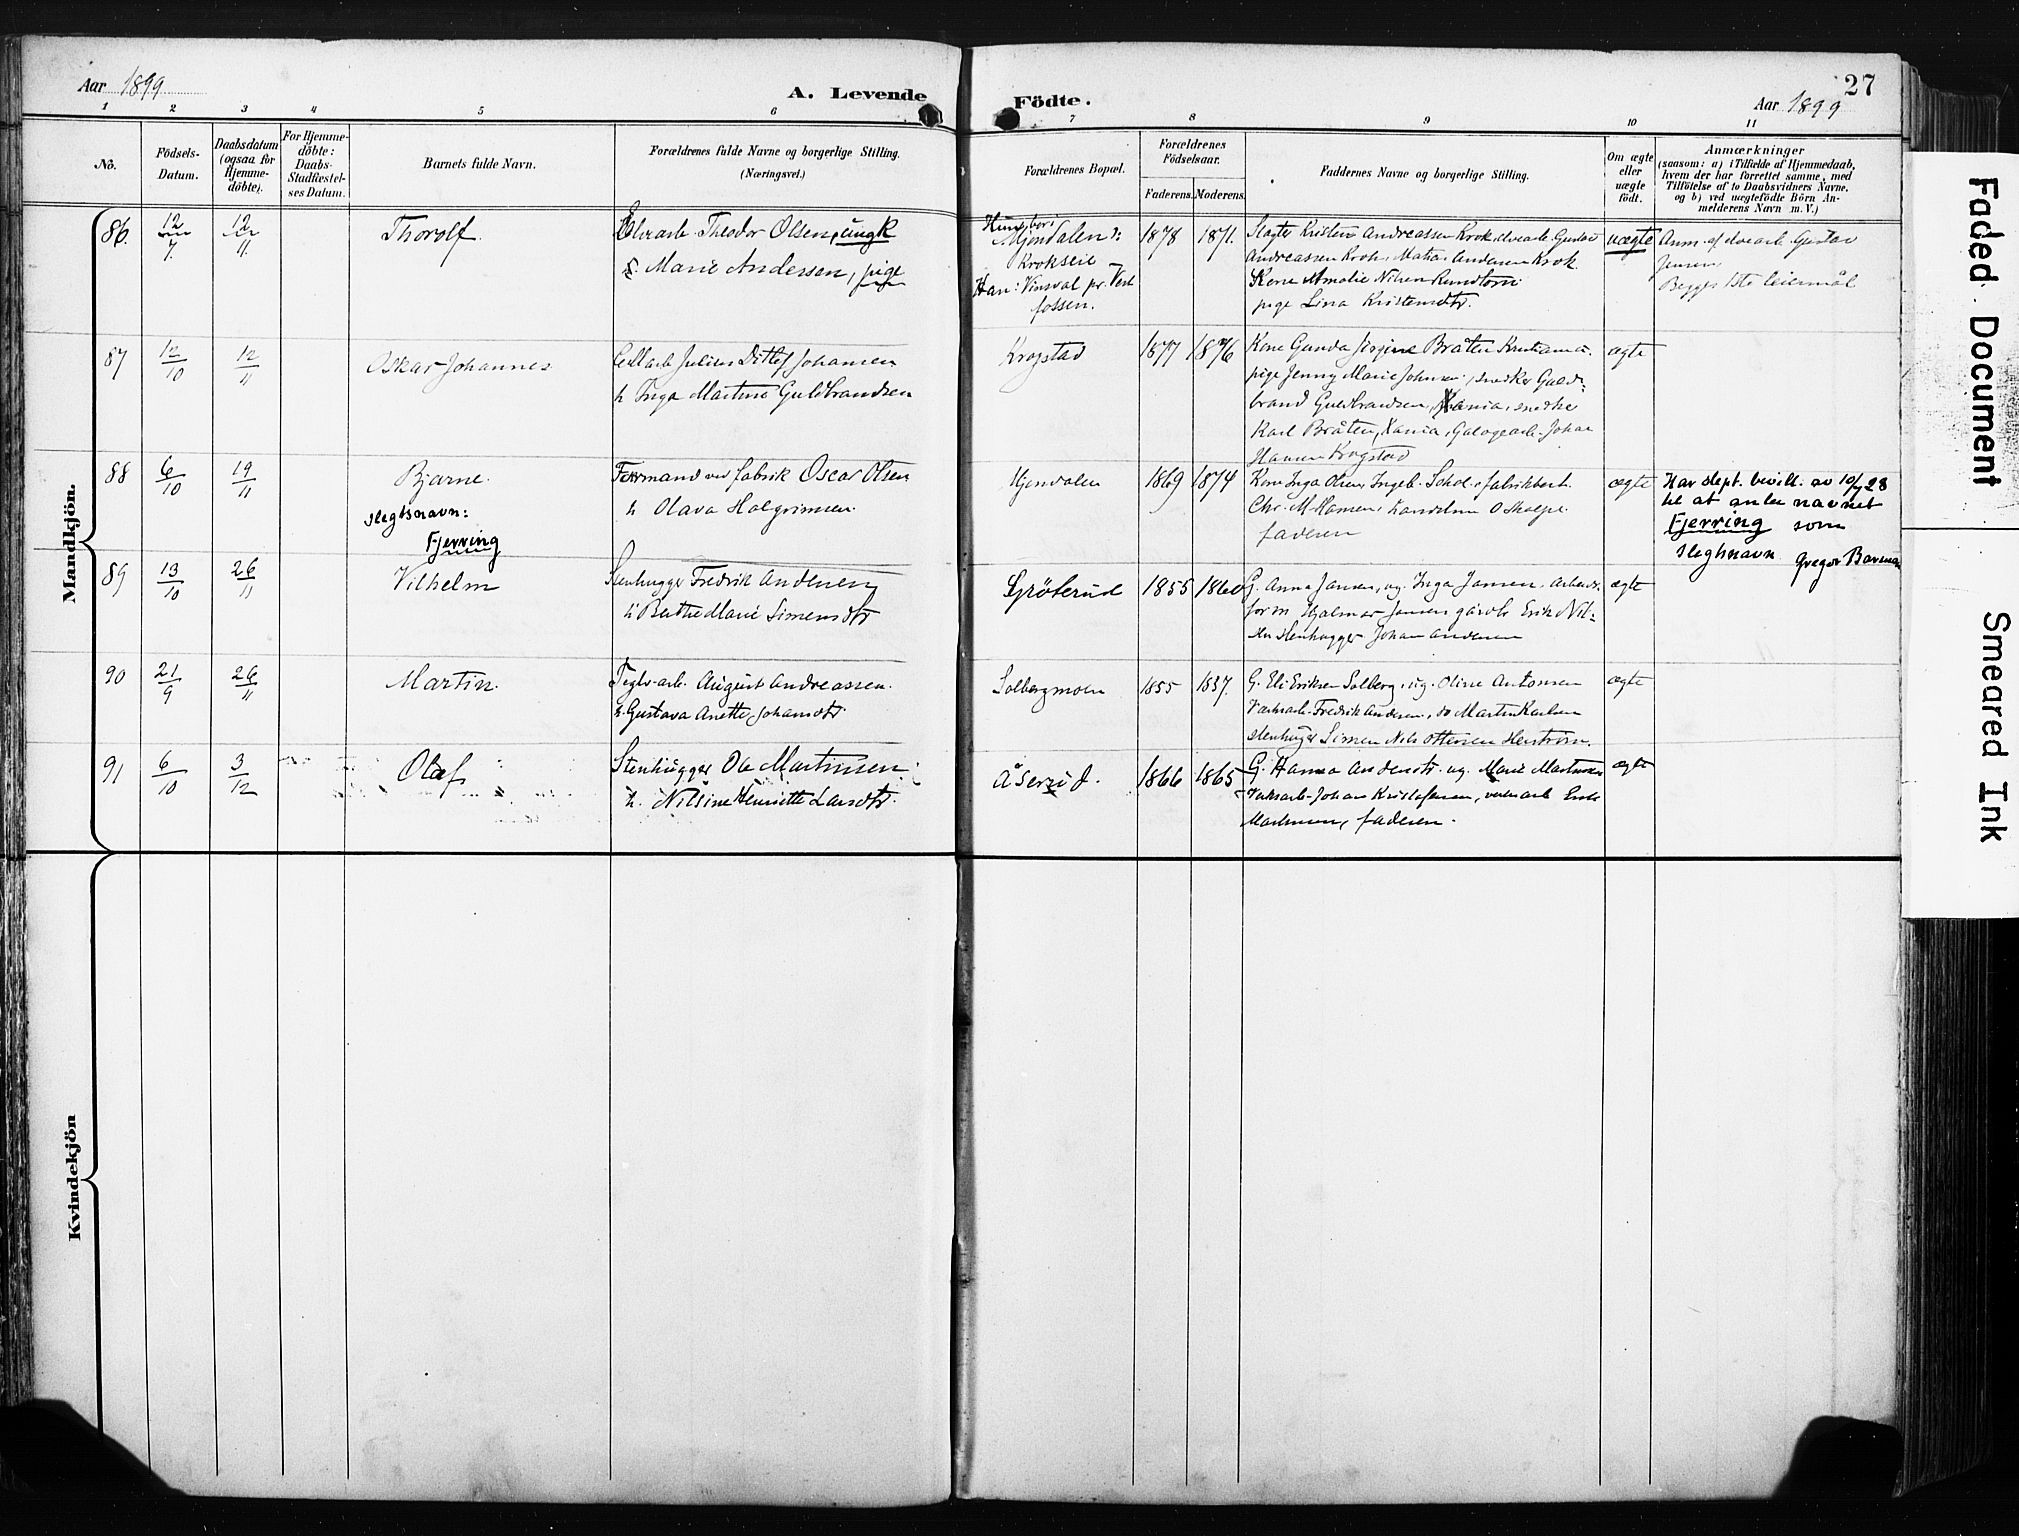 Aar 1899
A. Levende
Födte.
Aar 1899
27
1 2 3 4 5 6 7 8 9 10 11
No.
Födsels-
Datum.
Daabsdatum
(ogsaa for
Hjemme-
döbte).
For Hjemme-
döbte:
Daabs-
Stadfæstel-
ses Datum.
Barnets fulde Navn.
Forældrenes fulde Navne og borgerlige Stilling.
(Næringsvei.)
Forældrenes Bopæl.
Forældrenes
Födselsaar.
Faderens. Moderens.
Faddernes Navne og borgerlige Stilling.
Om ægte
eller
uægte
födt.
Anmærkninger
(saasom: a) i Tilfælde af Hjemmedaab,
hvem der har forrettet samme, med
Tilföielse af to Daabsvidners Navne,
og b) ved uægtefödte Börn An-
melderens Navn m. V.)
Mandkjön.
86. 12/7. 12/11. Thorolf.
Theodor Olsen, ungk
Marie Andersen, pige
Hun bor:
Mjøndalen
Krokseie
Han: Vinsvol pr. Vest
fossen.
1878 1871.
Slagter Kristian Andreassen Krok, elvearb. Gustav
Andreassen Krok, Andersen Krok
Kone Amalie Nilsen
pige Lina
uægte
Anm. af elvearb Gustav
Jensen
Begges 1ste leiermål
87 12/10 12/11 Oskar Johannes
Julius Ditlef Johansen
h Inga Martine Guldbrandsen
Krogstad
1877 1876
Kone Gunda Jørgine Bråten Kristiania.
pige Jenny Marie Johnsen, snedker Guld-
brand Guldbrandsen, Xania, snedker
Karl Bråten, Xania, Johan
Hansen Krogstad
ægte
88 6/10 19/11 Bjarne.
slegtsnavn:
Fjerring
Formand ved fabrik Oscar Olsen
h Olava Halgrimsen.
Mjøndalen
1869 1874
Kone Inga Olsen, Ingeb. fabrikbest.
Chr. M Hansen,
faderen
ægte
Har dept. bevill. av 10/9 28
til at anta navnet
Fjerring som
slegtsnavn Gregor
89 13/10 26/11 Vilhelm
Stenhugger Fredrik Andersen
h Berthe Marie Simensdtr
Grøterud
1855 1860
G. Anna Jansen, ug. Inga Jansen, arbeids-
form Hjalmar Jansen gårdbr Erik Nil-
sen stenhugger Johan Andersen
ægte
90 21/9 26/11 Martin.
Teglv.arb. August Andreassen.
h. Gustava Anette Johansdtr.
Solbergmoen
1855 1857.
G. Eli Eriksen Solberg, ug. Oline Antonsen
Verksarb. Fredrik Andersen, do Martin Karlsen
stenhugger Simen Nils Ottersen
ægte
91 6/10 3/12 Olaf
Stenhugger Ole Martinsen
h. Nilsine Henriette Larsdtr.
Åserud.
1866 1865
G. Hanna Andersdtr. ug. Marie Martinsen
Verksarb. Johan Kristofersen, verksarb Erik
Martinsen, faderen.
ægte
Kvindekjön
Faded Document
Smeared Ink